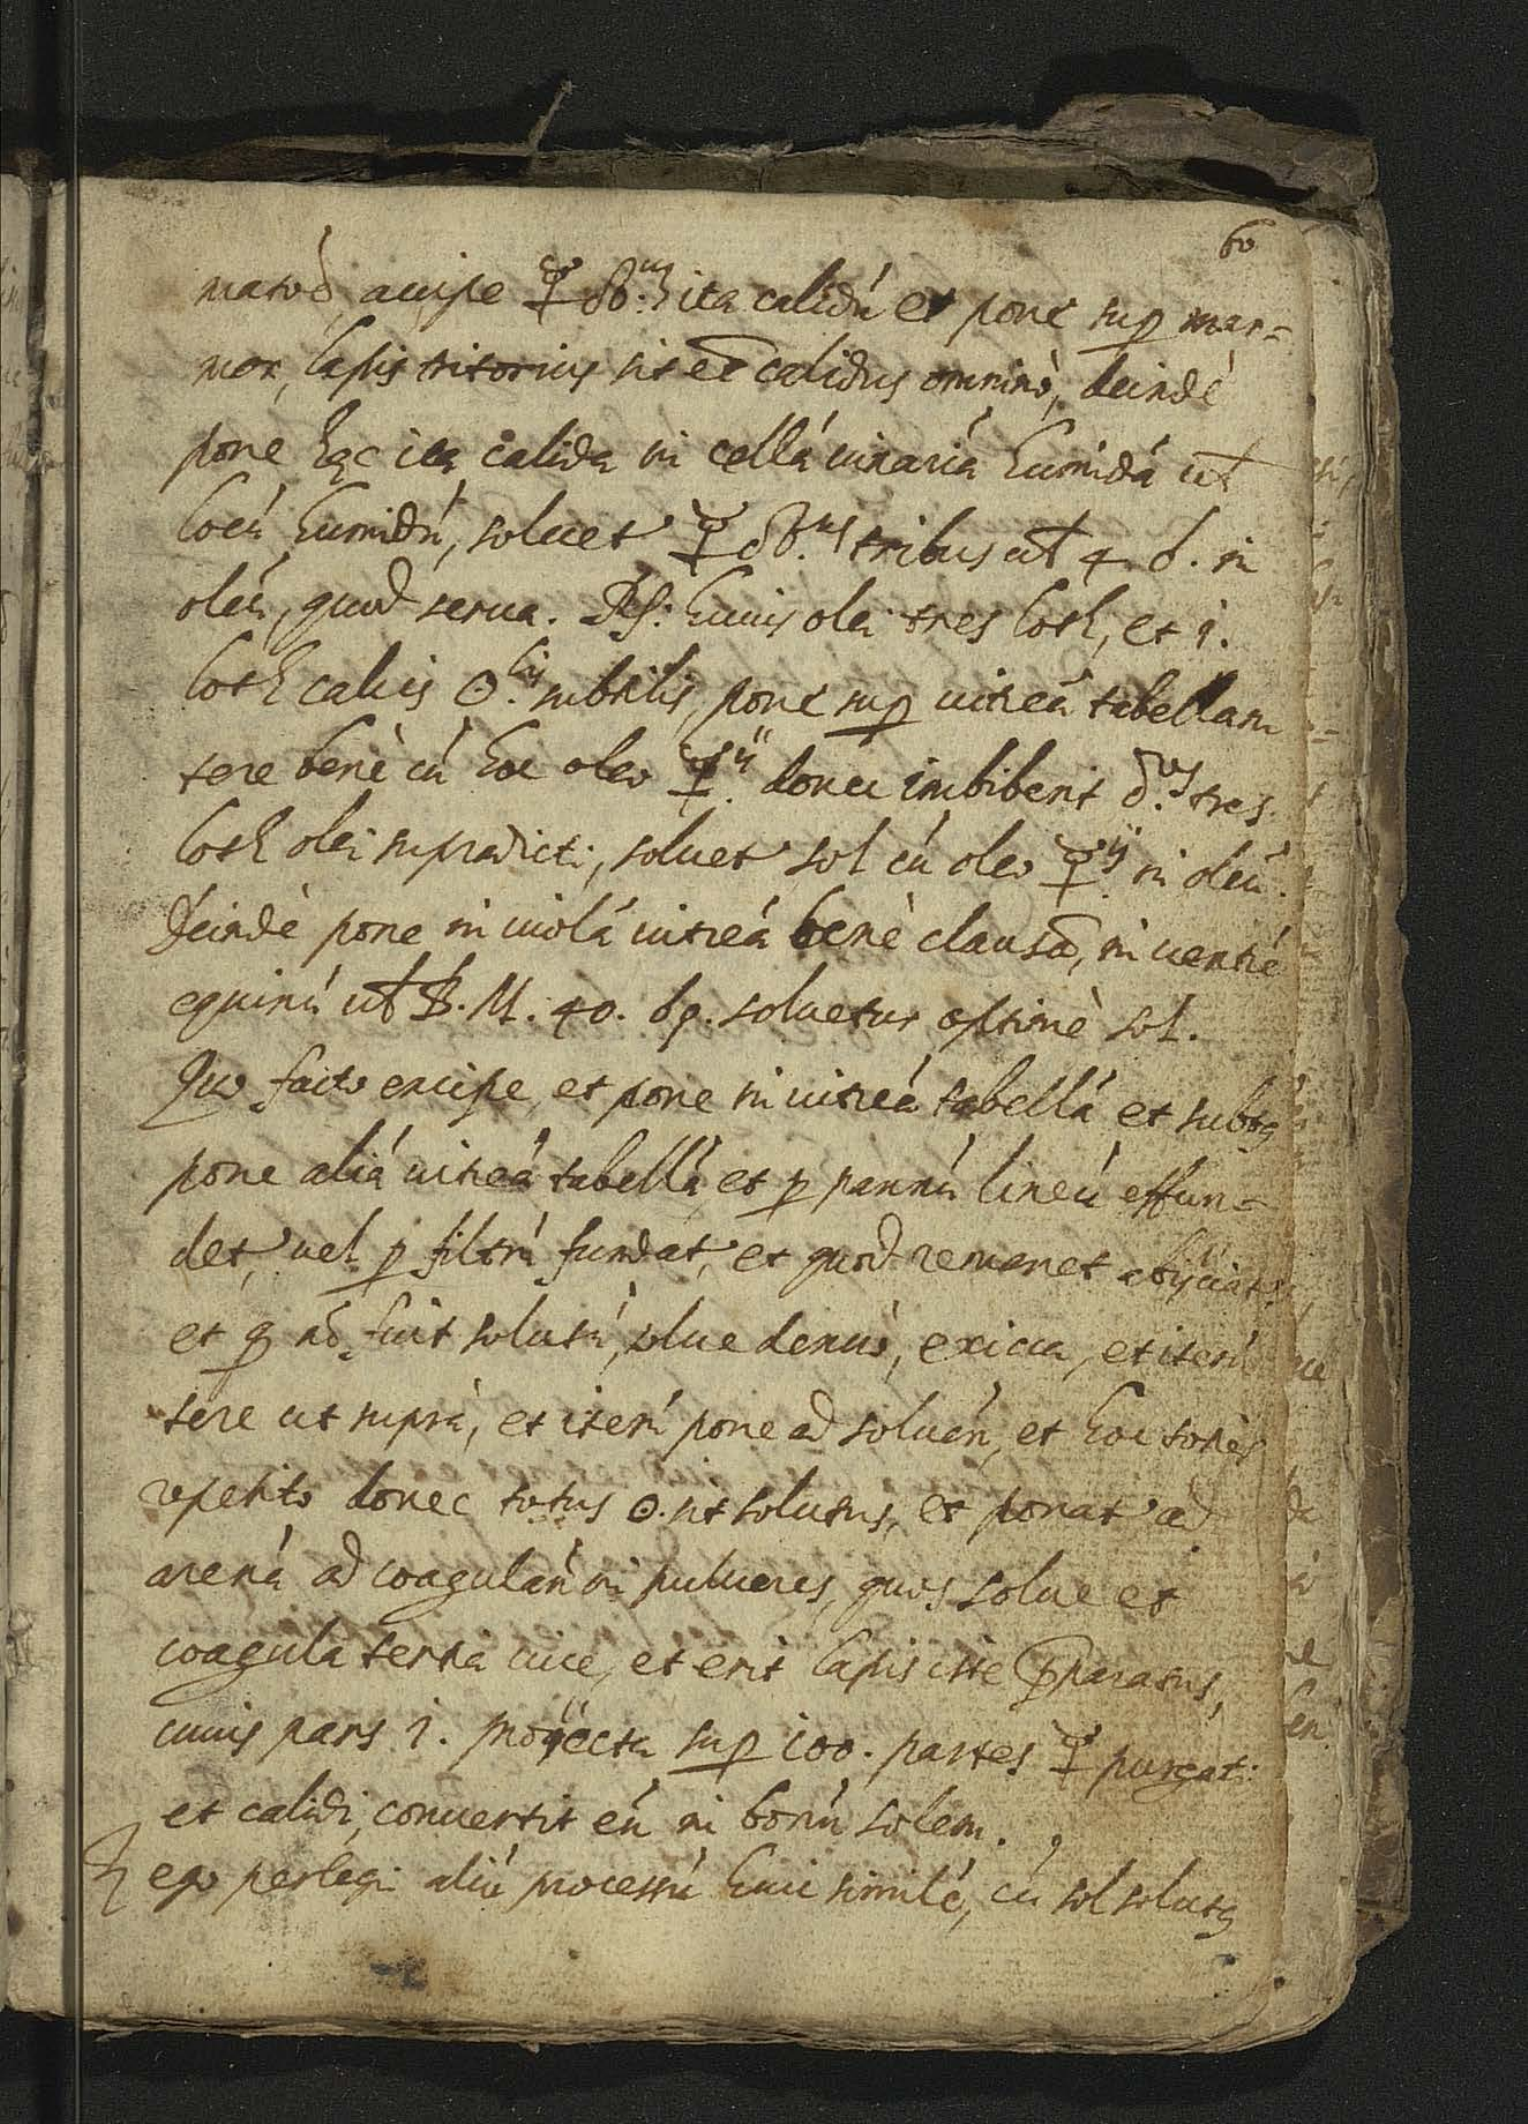 60
accipe ☿ sb.m ita calidú et pone sup mar=
mor, lapis tritorius sit eã calidus omninò, deindè
pone hęc ita calida in cellá uinariá humidá ut
locú humidú, soluet ☿ sb. tribus ut 4 d. in
oleú, quod serua. Rp: huius olei tres loth, et 1.
loth calcis ☉.lis subtilis, pone sup uitreá tabellam
tere benè cú hoc oleo ☿.ij donec imbiberit tres
loth olei supradicti, soluet sol cú oleo ☿ij in oleú.
Deindè pone in uiolá uitreá benè clausã, in uentré
equinú ut B. M. 40. dę. soluetur optimè sol.
Quo facto excipe, et pone in uitreá tabellá et subtꝰ
pone aliá uitreá tabellá, et p pannú lineú effun=
det, uel p filtrú fundat, et quod remanet abijciat
et q nõ fuit solutú, solue denuò, exicca, et iterú
tere ut suprà, et iterú pone ad soluén, et hoc toties
repetito donec totus ☉. sit solutus, et ponat ad
arená ad coagulán in pulueres, quos solue et
coagula tertia uice, et erit lapis iste pparatus,
cuius pars 1. proijecta sup 100. partes ☿ purgati
et calidi, conuertit eú in bonú solem.
ego perlegi aliú processú huic similé, cú sol solutꝰ